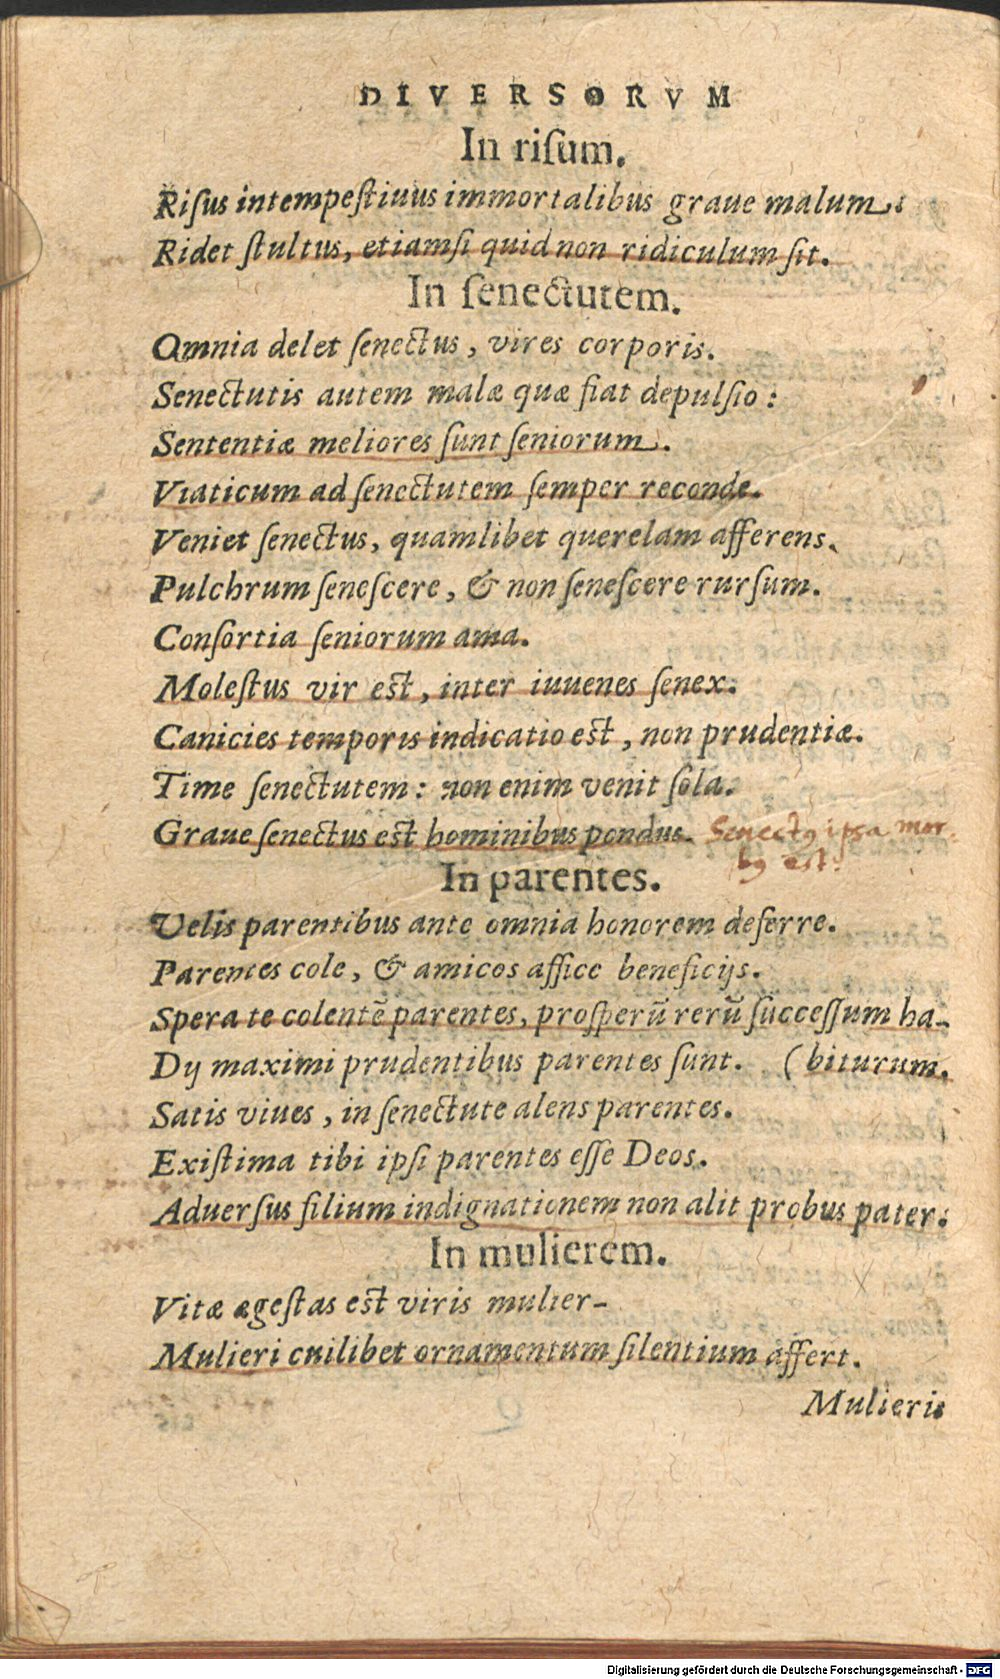 DIVERSORVM
In riſum.
Riſus intempeſtiuus immortalibus graue malum:
Ridet ſtultus, etiamſi quid non ridiculum ſit.
In ſenectutem.
Omnia delet ſenectus, vires corporis.
Senectutis autem malæ quæ fiat depulſio:
Sententiæ meliores ſunt ſeniorum.
Viaticum ad ſenectutem ſemper reconde.
Veniet ſenectus, quamlibet querelam afferens.
Pulchrum ſeneſcere, & non ſeneſcere rurſum.
Conſortia ſeniorum ama.
Moleſtus vir eſt, inter iuuenes ſenex.
Canicies temporis indicatio eſt, non prudentiæ.
Time ſenectutem: non enim venit ſola.
Graue ſenectus eſt hominibus pondus. Senectꝰ ipsa mor-
bꝰ est.
In parentes.
Velis parentibus ante omnia honorem deferre.
Parentes cole, & amicos affice beneficijs.
Spera te colentẽ parentes, proſperũ rerũ ſucceſſum ha-
Dij maximi prudentibus parentes ſunt. (biturum.
Satis viues, in ſenectute alens parentes.
Exiſtima tibi ipſi parentes eſſe Deos.
Aduerſus filium indignationem non alit probus pater.
In mulierem.
Vitæ ægeſtas eſt viris mulier-
Mulieri cuilibet ornamentum ſilentium affert.
Mulieris
Digitalisierung gefördert durch die Deutsche Forschungsgemeinschaft - DFG